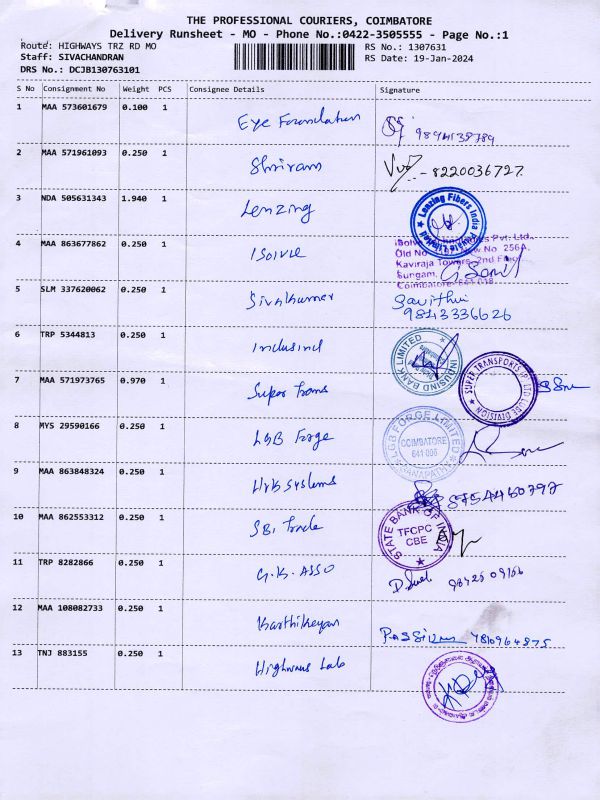 THE PROFESSIONAL COURIERS, COIMBATORE
Delivery Runsheet - MO - Phone No.:0422-3505555 - Page No.:1
Route: HIGHWAYS TRZ RD MO RS No.: 1307631
Staff: SIVACHANDRAN RS Date: 19-Jan-2024
DRS No.: DCJB130763101
S No Consignment No Weight PCS Consignee Details Signature
1 MAA 573601679 0.100 1 Eye Foundation
2 MAA 571961093 0.250 1 Shriram 8220036727
3 NDA 505631343 1.940 1 Lenzing
Lenzing Fibers India Private Limited
4 MAA 863677862 0.250 1 Isolve
Kaviraja Towers, 2nd Floor
Sungam,
Coimbatore
5 SLM 337620062 0.250 1 Sivakumar Savithri
9843336626
6 TRP 5344813 0.250 1 Indusind
INDUSIND BANK LIMITED
7 MAA 571973765 0.970 1 Super Trans
SUPER TRANSPORTS P LTD LUBE DIVISION
8 MYS 29590166 0.250 1 LGB Forge
LGB FORGE LIMITED
COIMBATORE
641 006
GANAPATHY
9 MAA 863848324 0.250 1 Systems 8754460797
10 MAA 862553312 0.250 1 SBI Trade
STATE BANK OF INDIA
TFCPC
CBE
11 TRP 8282866 0.250 1 G.K. ASSO
12 MAA 108082733 0.250 1 Karthikeyan 7810964875
13 TNJ 883155 0.250 1 Highways Lab